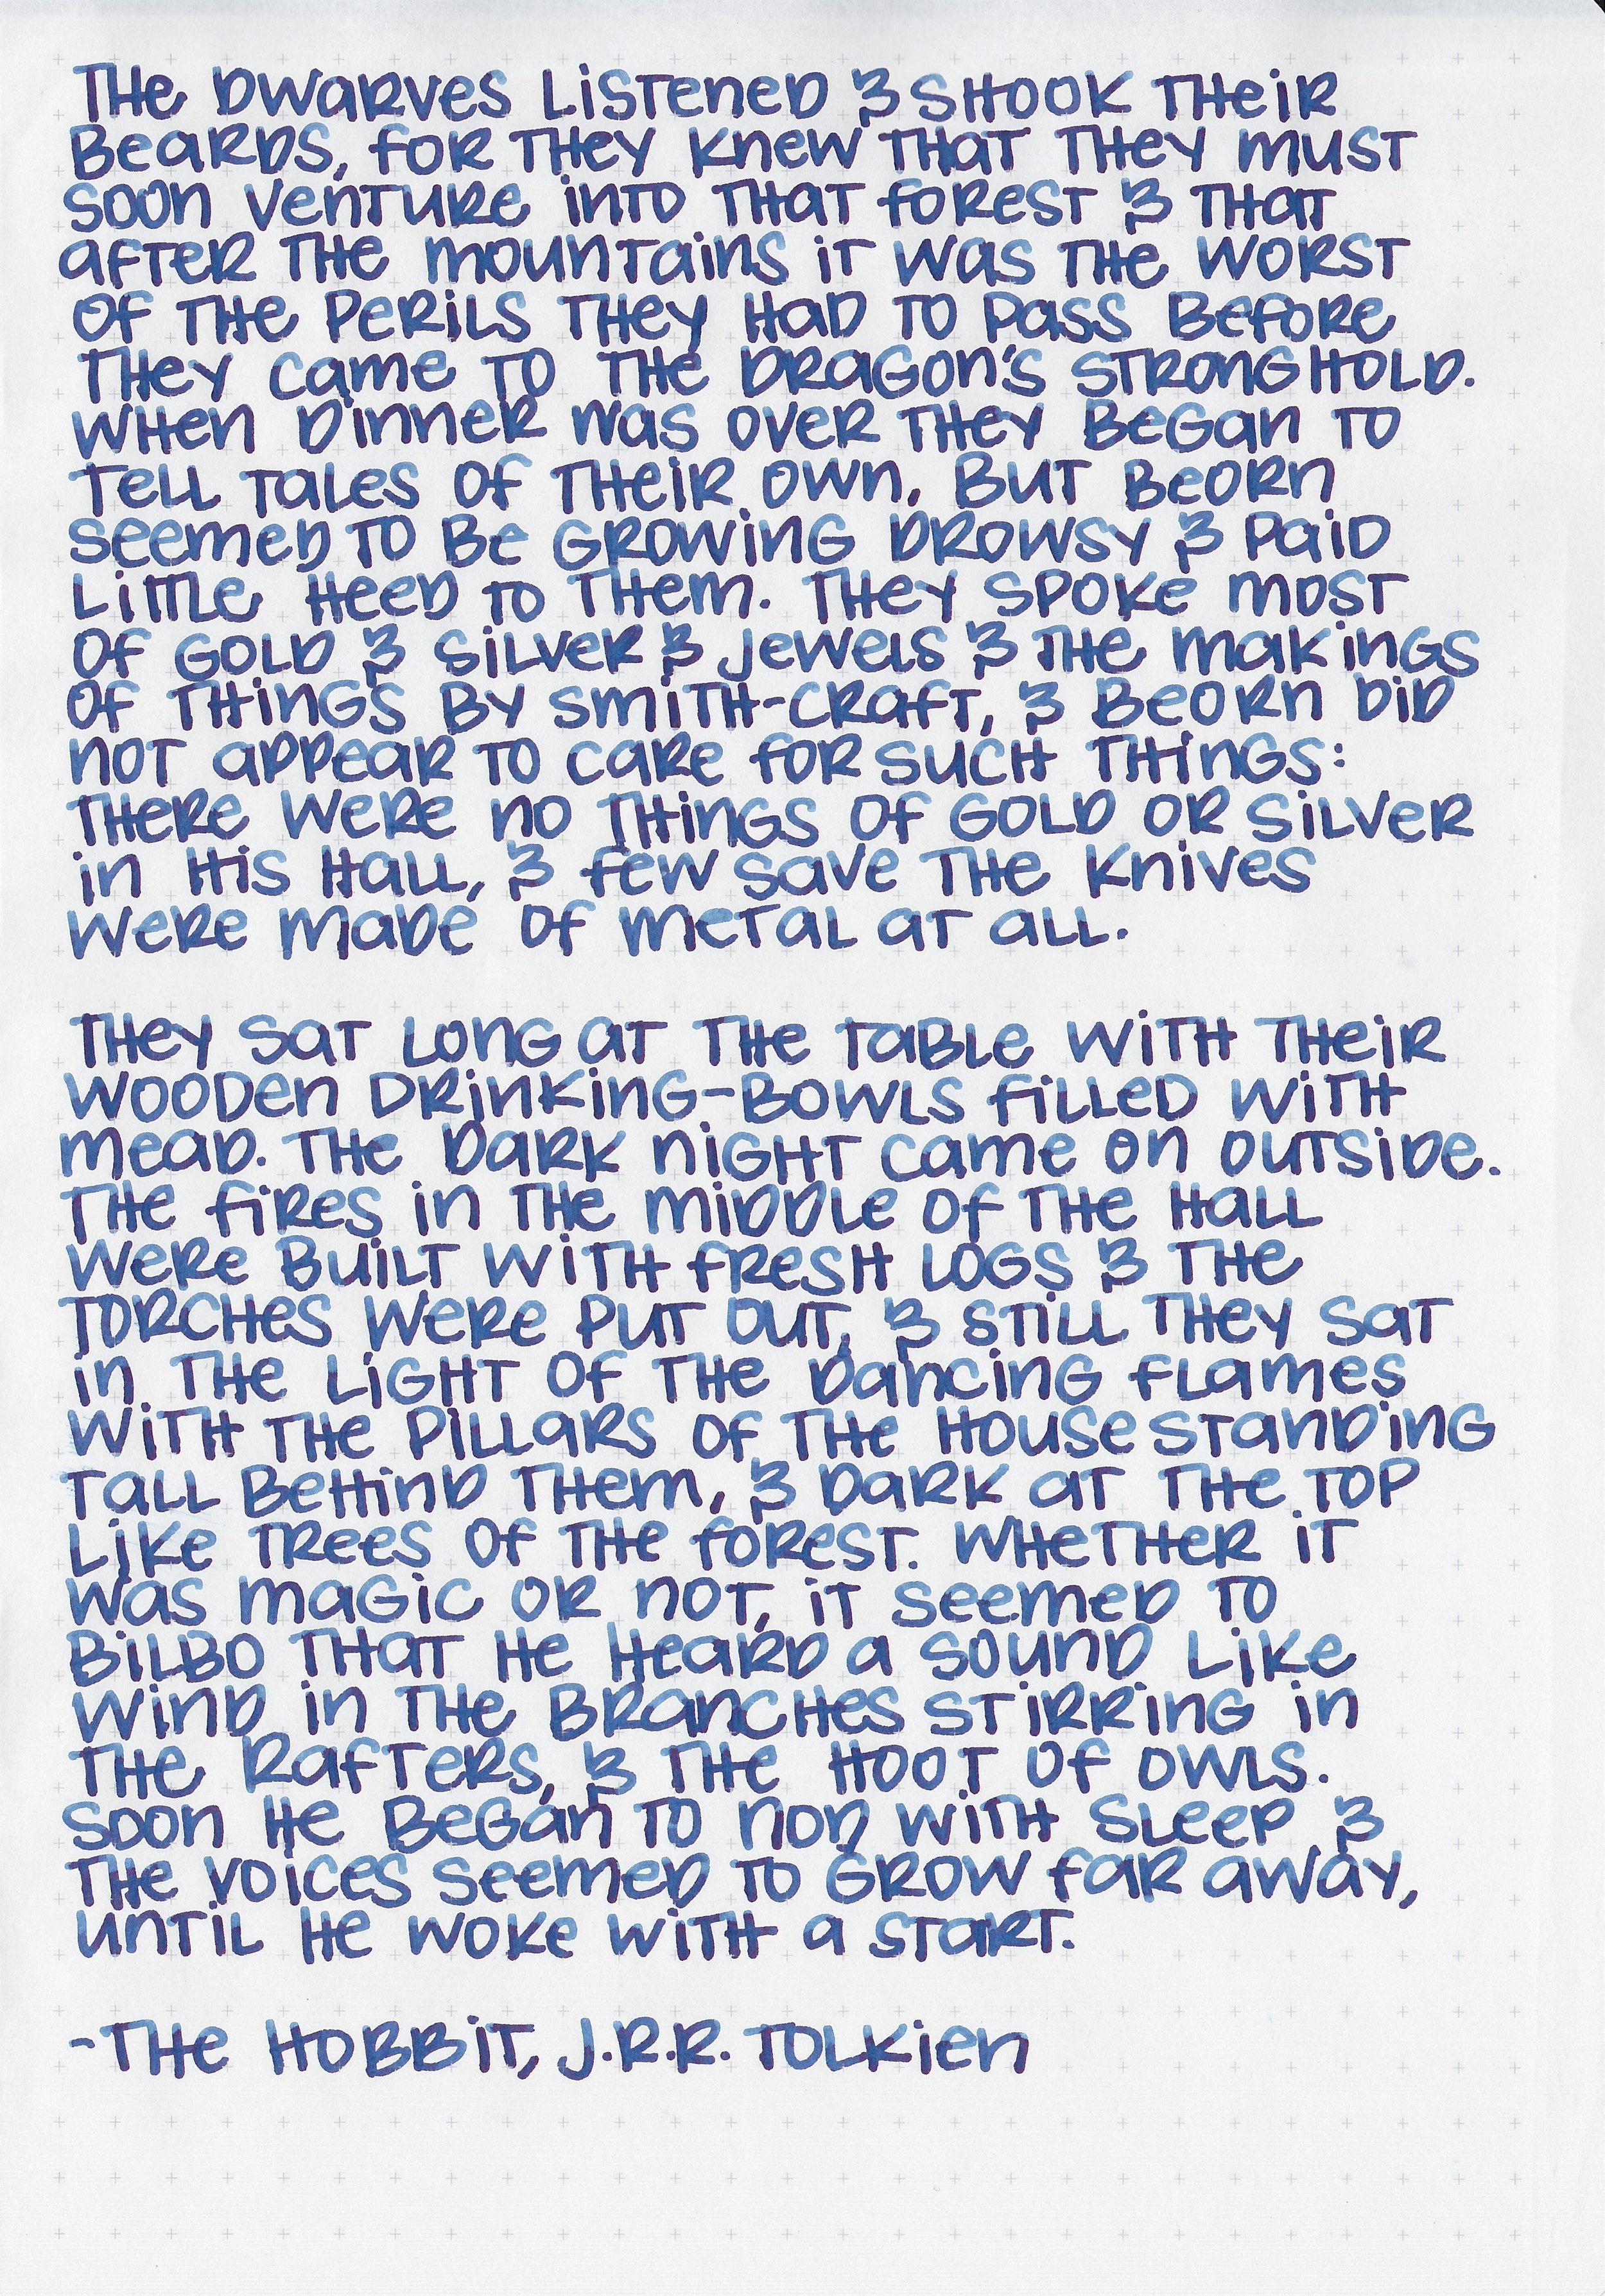 The dwarves listened & shook their
beards, for they knew that they must
soon venture into that forest & that
after the mountains it was the worst
of the perils they had to pass before
they came to the dragon's stronghold.
When dinner was over they began to
tell tales of their own, but Beorn
seemed to be growing drowsy & paid
little heed to them. They spoke most
of gold & silver & jewels & the makings
of things by smith-craft, & Beorn did
not appear to care for such things:
there were no things of gold or silver
in his hall, & few save the knives
were made of metal at all.

They sat long at the table with their
wooden drinking-bowls filled with
mead. The dark night came on outside.
The fires in the middle of the hall
were built with fresh logs & the
torches were put out, & still they sat
in the light of the dancing flames
with the pillars of the house standing
tall behind them, & dark at the top
like trees of the forest. Whether it
was magic or not, it seemed to
Bilbo that he heard a sound like
wind in the branches stirring in
the rafters, & the hoot of owls.
Soon he began to nod with sleep &
the voices seemed to grow far away,
until he woke with a start.

-The Hobbit, J.R.R. Tolkien